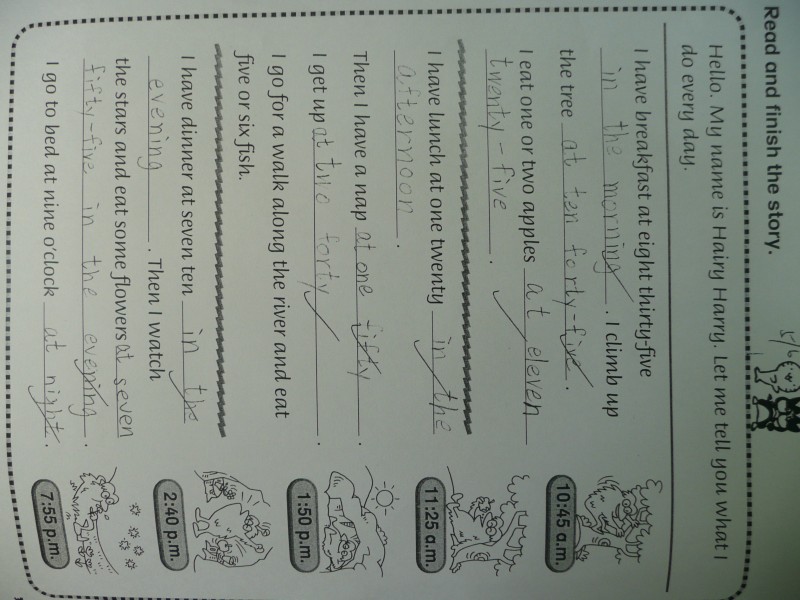 Read and finish the story.
Hello. My name is Hairy Harry. Let me tell you what I
do every day.
I have breakfast at eight thirty-five
in the morning. I climb up
the tree at ten forty-five.
I eat one or two apples at eleven
twenty-five.
I have lunch at one twenty in the
afternoon.
Then I have a nap at one fifty.
I get up at two forty.
I go for a walk along the river and eat
five or six fish.
I have dinner at seven ten in the
evening. Then I watch
the stars and eat some flowers at seven
fifty-five in the evening.
I go to bed at nine o'clock at night.
10:45 a.m.
11:25 a.m.
1:50 p.m.
2:40 p.m.
7:55 p.m.